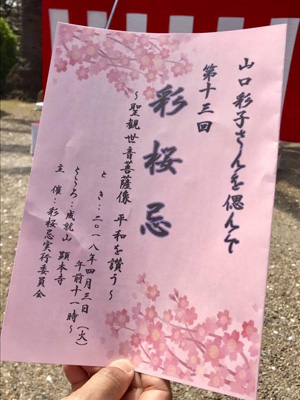 山口彩子さんを偲んで
第十三回
彩桜忌
～聖観世音菩薩像 平和を讃う～
とき：二〇一八年四月三日（火）
午前十一時～
ところ：成就山 顕本寺
主催：彩桜忌実行委員会